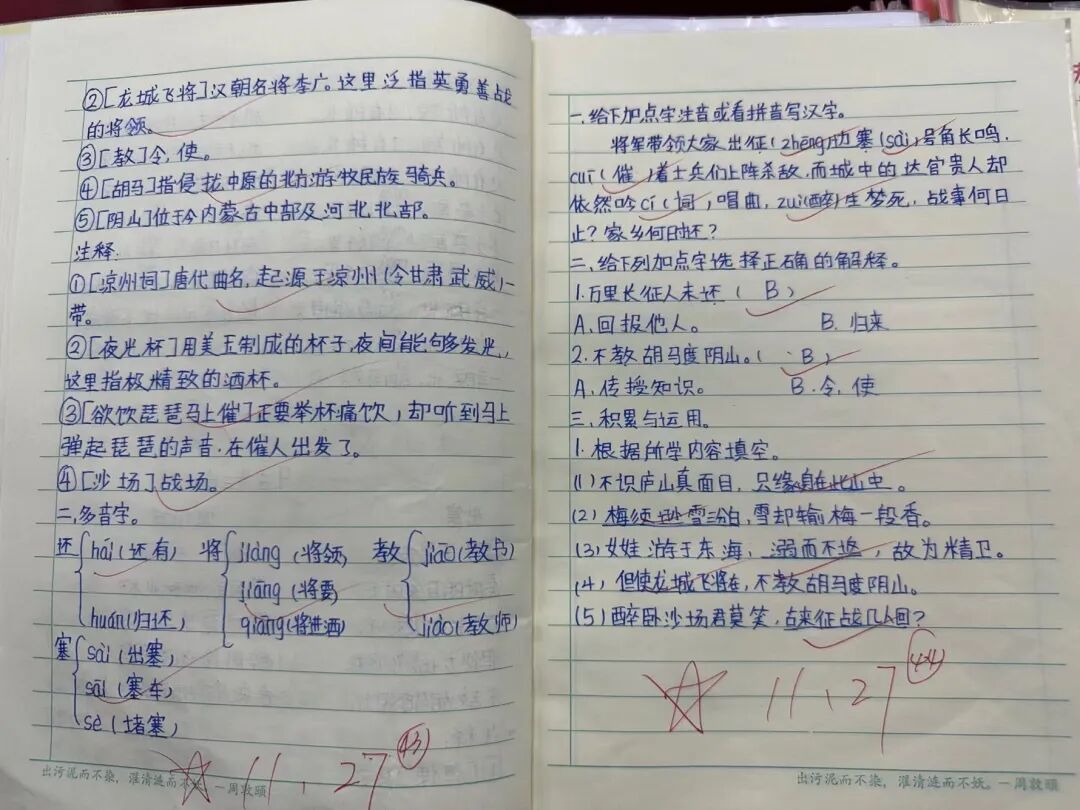 ②[龙城飞将]汉朝名将李广。这里泛指英勇善战
的将领。
③[教]令,使。
④[胡马]指侵扰中原的北方游牧民族骑兵。
⑤[阴山]位于今内蒙古中部及河北北部。
注释:
①[凉州词]唐代曲名,起源于凉州(今甘肃武威)一
带。
②[夜光杯]用美玉制成的杯子,夜间能够多发光,
这里指极精致的酒杯。
③[欲饮琵琶马上催]正要举杯痛饮,却听到马上
弹起琵琶的声音,在催人出发了。
④[沙场]战场。
二、多音字。
还 hái(还有) 将 jiàng(将领) 教 jiāo(教书)
jiāng(将要)
huán(归还) qiāng(将进酒) jiào(教师)
塞 sài(出塞)
sāi(塞车)
sè(堵塞)
11.27 43
出污泥而不染,濯清涟而不妖。—周敦颐
一、给下加点字注音或看拼音写汉字。
将军带领大家出征(zhēng)边塞(sài)号角长鸣,
cuī(催)着士兵们上阵杀敌,而城中的达官贵人却
依然吟cí(词)唱曲,zuì(醉)生梦死,战事何日
止?家乡何时还?
二、给下列加点字选择正确的解释。
1.万里长征人未还(B)
A.回报他人。 B.归来
2.不教胡马度阴山。(B)
A.传授知识。 B.令,使
三、积累与运用。
1.根据所学内容填空。
(1)不识庐山真面目,只缘身在此山中。
(2)梅须逊雪三分白,雪却输梅一段香。
(3)女娃游于东海,溺而不返,故为精卫。
(4)但使龙城飞将在,不教胡马度阴山。
(5)醉卧沙场君莫笑,古来征战几人回?
11.27 44
出污泥而不染,濯清涟而不妖。—周敦颐